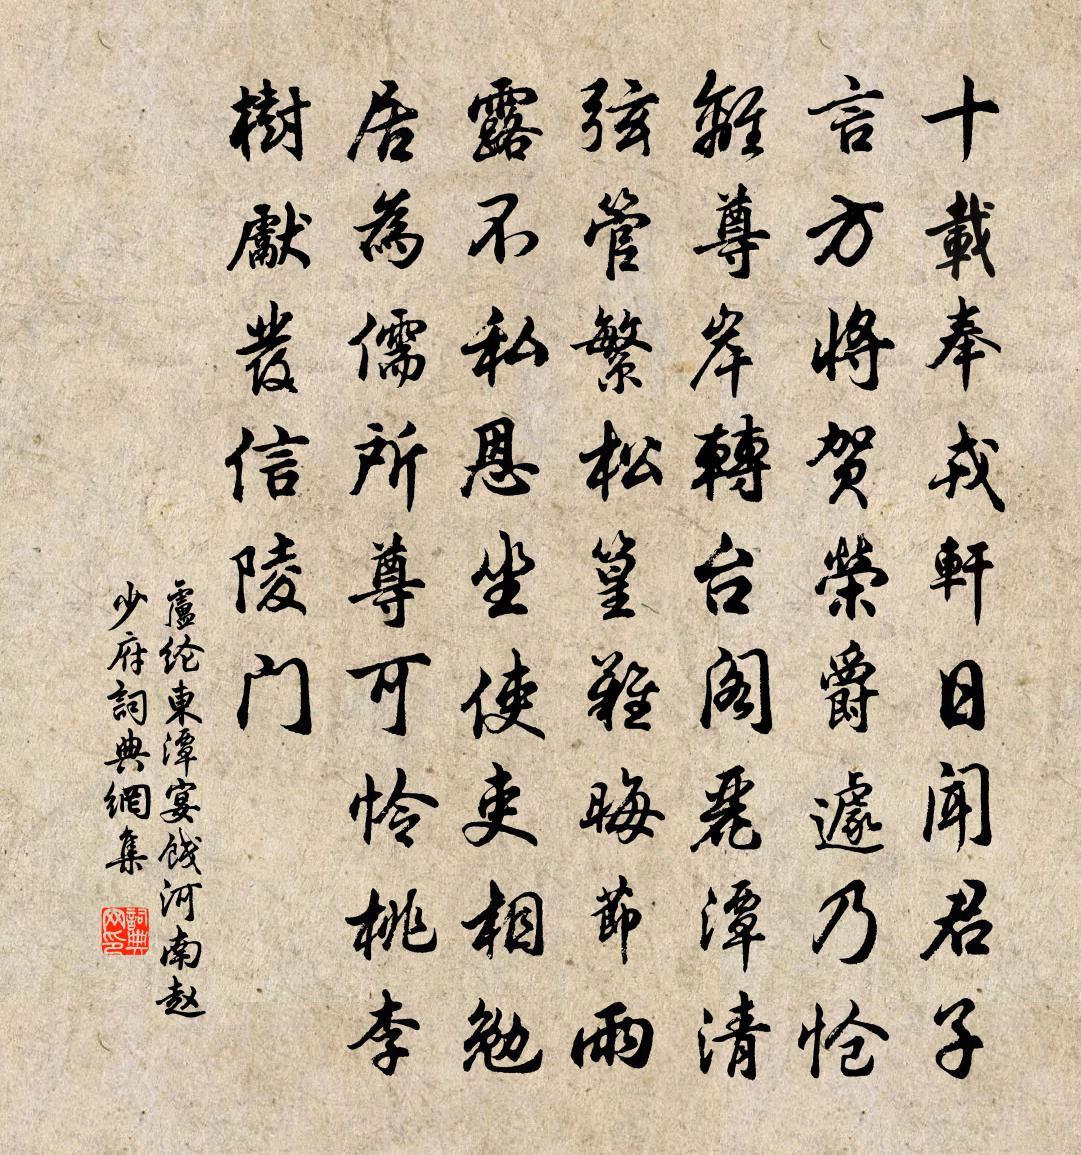 十載奉戎軒日闻君子
言方將贺榮爵遽乃怆
離尊岸轉台阁麗潭清
弦管繁松篁難晦節雨
露不私恩坐使吏相勉
居為儒所尊可怜桃李
樹獻發信陵门
盧纶東潭宴饯河南赵
少府詞典網集
詞典网印